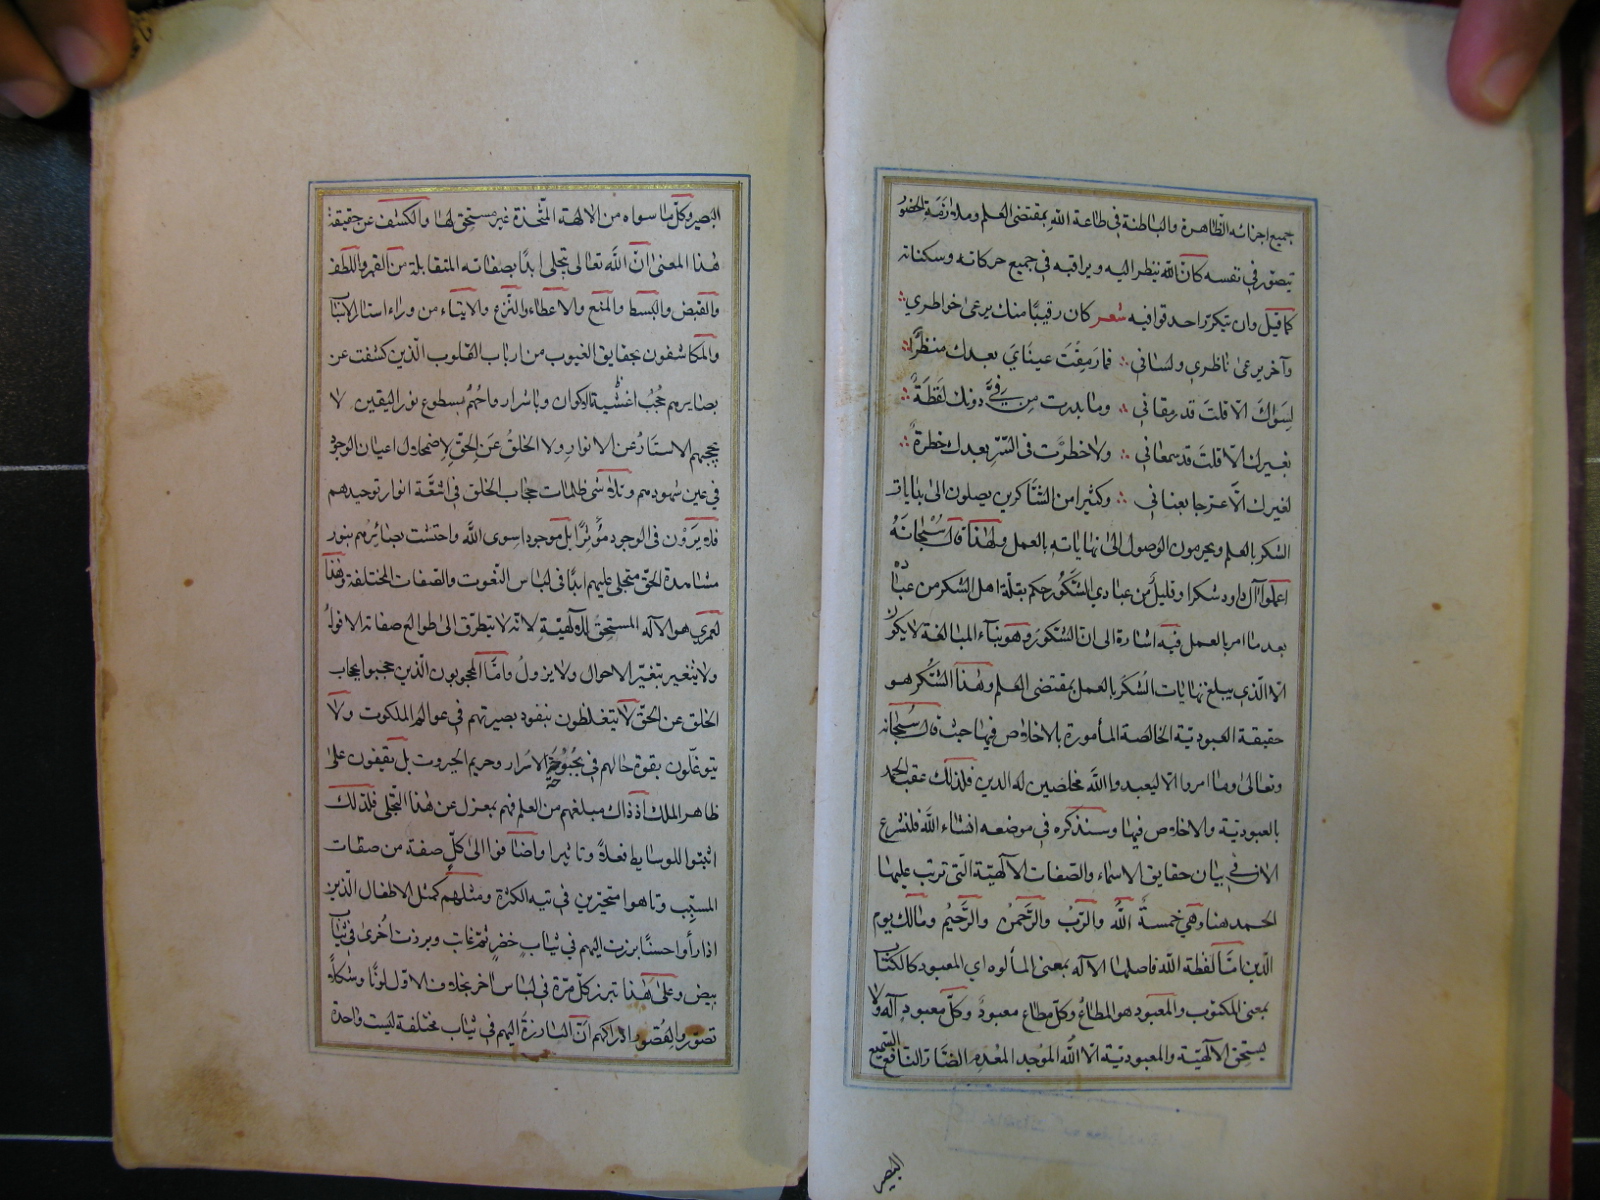 جميع اجزائه الظاهرة والباطنة في طاعة الله بمقتضى العلم وملازمة الحضور
يتصوّر في نفسه كانّ الله ينظر اليه ويراقبه في جميع حركاته وسكناته
كما قيل وان تكرّر احد قوافيه شعر كان رقيبًا منك يرعى خواطري
وآخر يرعى ناظري ولساني فما رمقت عيناي بعدك منظرًا
لسواك الّا قلت قد رمقاني وما بدرت من فيّ دونك لفظةً
بغيرك الّا قلت قد سمعاني ولا خطرت في السّرّ بعدك خطرةٌ
لغيرك الّا عرجا بعناني وكثيرا من الشّاكرين يصلون الى بدايات
الشكر بالعلم ويحرمون الوصول الى نهاياته بالعمل ولهذا قال سُبْحانَهُ
اعملوا آل داود شكرا وقليلٌ من عبادي الشّكُور حكم بقلّة اهل الشكر من عباده
بعد ما امر بالعمل فيه اشارة الى انّ الشّكور وهو بناء المبالغة لا يكون
الّا الّذي يبلغ نهايات الشّكر بالعمل بمقتضى العلم وهذا الشّكر هو
حقيقة العبوديّة الخالصة المأمورة بالاخلاص فيها حيث قال سُبحانه
وتعالى وما امروا الّا ليعبدوا الله مخلصين له الدين فلذلك عقب الحمد
بالعبوديّة والاخلاص فيها وسنذكره في موضعه انشاء الله فلنشرع
الان في بيان حقايق الاسماء والصّفات الآلهيّة الّتي ترتب عليها
الحمد هنا وهي خمسةٌ اللهُ والرّبُ والرّحمنُ والرّحيمُ ومالك يوم
الدّين امّا لفظة الله فاصلها الآله بمعنى المألوه اي المعبود كالكتاب
بمعنى المكتوب والمعبود هو المطاعُ وكلّ مطاع معبودٌ وكلّ معبود آله ولا
يستحق الآلهيّة والمعبوديّة الّا الله الموجد المعدم الضّارّ النّافع السّميع
البصير
البَصير وكلّ ما سواه من الآلهة المتّخذة غير مستحق لها والكشف عن حقيقة
هذا المعنى انّ الله تعالى يتجلى ابدًا بصفاته المتقابلة من القهر واللطف
والقبض والبسط والمنع والاعطاء والنّزع والايتاء من وراء استار الاسباب
والمكاشفون بحقايق الغيوب من ارباب القلوب الّذين كشفت عن
بصايرهم حُجُبُ اغشية الاكوان وباسرار واحهم بسطوع نور اليقين لا
يحجبهم الاستارُ عن الانوار ولا الخلقُ عن الحقّ لاضمحلال اعيان الوجود
في عين شهودهم وتلاشى ظلمات حجاب الخلق في اشعّة انوار توحيدهم
فلا يَرَوْن في الوجود مؤثّرًا بل موجودا سوى الله واحتشت بصائرهم بنور
مشاهدة الحقّ متجلى عليهم ابدًا في لباس النّعوت والصّفات المختلفة وهذا
لعمري هو الآله المستحقُ للآلهيّة لانّه لا يتطرّق الى طوالع صفاته الافولُ
ولا يتغير بتغيّر الاحوال ولا يزول وامّا المحجوبون الّذين حجبوا بحجاب
الخلق عن الحقّ لا يتغلغلون بنفوذ بصيرتهم في عوالم الملكوت ولا
يتوغّلون بقوة حالهم في بُحبُوحَة الاسرار وحريم الجبروت بل يقفون على
ظاهر الملك اذ ذاك مبلغهم من العلم فهم بمعزل عن هذا التجلى فلذلك
اثبتوا للوسايط فعلاً وتاثيرا واضافوا الى كلّ صفة من صفات
المسبّب وتاهوا متحيّرين في تيه الكثرة ومثلهم كمثل الاطفال الّذين
اذا رأوا حسنًا برزت اليهم في ثياب خضرٍ ثمّ غابت وبرزت أخرى في ثياب
بيض وعلى هذا تبرز كلّ مرّة في لباس آخر بخلاف الاوّل لونًا وشكلاً
تصوّروا لقصور ادراكهم انّ البارزة اليهم في ثياب مختلفة ليست واحدة